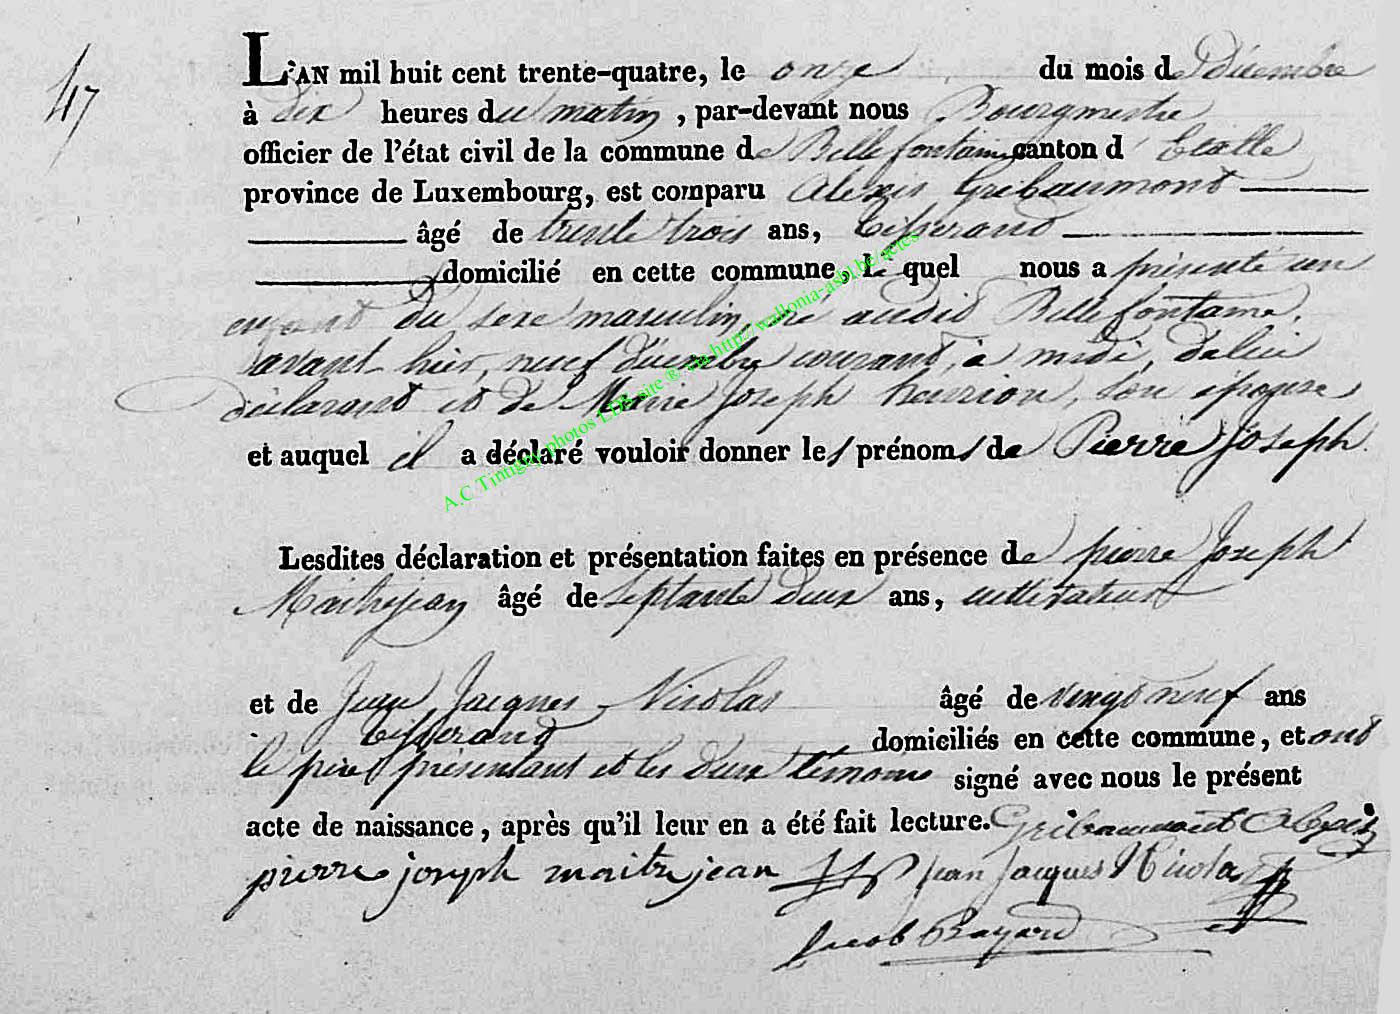 47
L'AN mil huit cent trente-quatre, le onze du mois de Décembre
à dix heures du matin, par-devant nous Bourgmestre
officier de l'état civil de la commune de Bellefontaine canton d'Etalle
province de Luxembourg, est comparu Alexis Gribaumont
âgé de trente trois ans, tisserand
domicilié en cette commune, lequel nous a présenté un
enfant du sexe masculin, né audit Bellefontaine,
avant-hier, neuf décembre courant, à midi, de lui
déclarant et de Marie Joseph henrion son épouse
et auquel il a déclaré vouloir donner les prénoms de Pierre Joseph.
A.C Tintigny photos LDB site ® via http://wallonia-asbl.be/actes
Lesdites déclaration et présentation faites en présence de pierre Joseph
Maitrejean âgé de septante deux ans, cultivateur
et de Jean Jacques Nicolas âgé de vingt neuf ans
tisserand domiciliés en cette commune, et ont
le père présentant et les deux témoins signé avec nous le présent
acte de naissance, après qu'il leur en a été fait lecture. Gribaumont Alexis
pierre joseph maitrejean Jean Jacques Nicolas
Jacob Bayard